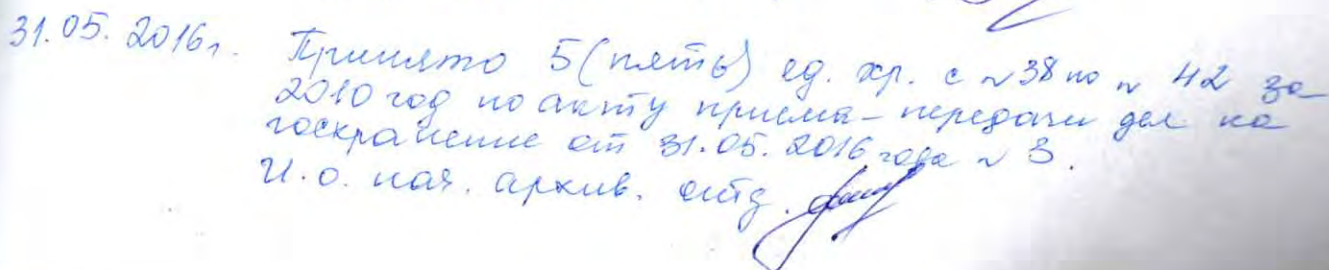 31.05.2016г. Принято 5 (пять) ед. хр. с №38 по № 42 за
2010 год по акту приема-передачи дел на
госхранение от 31.05.2016 года № 3.
И.о. нач. архив. отд.